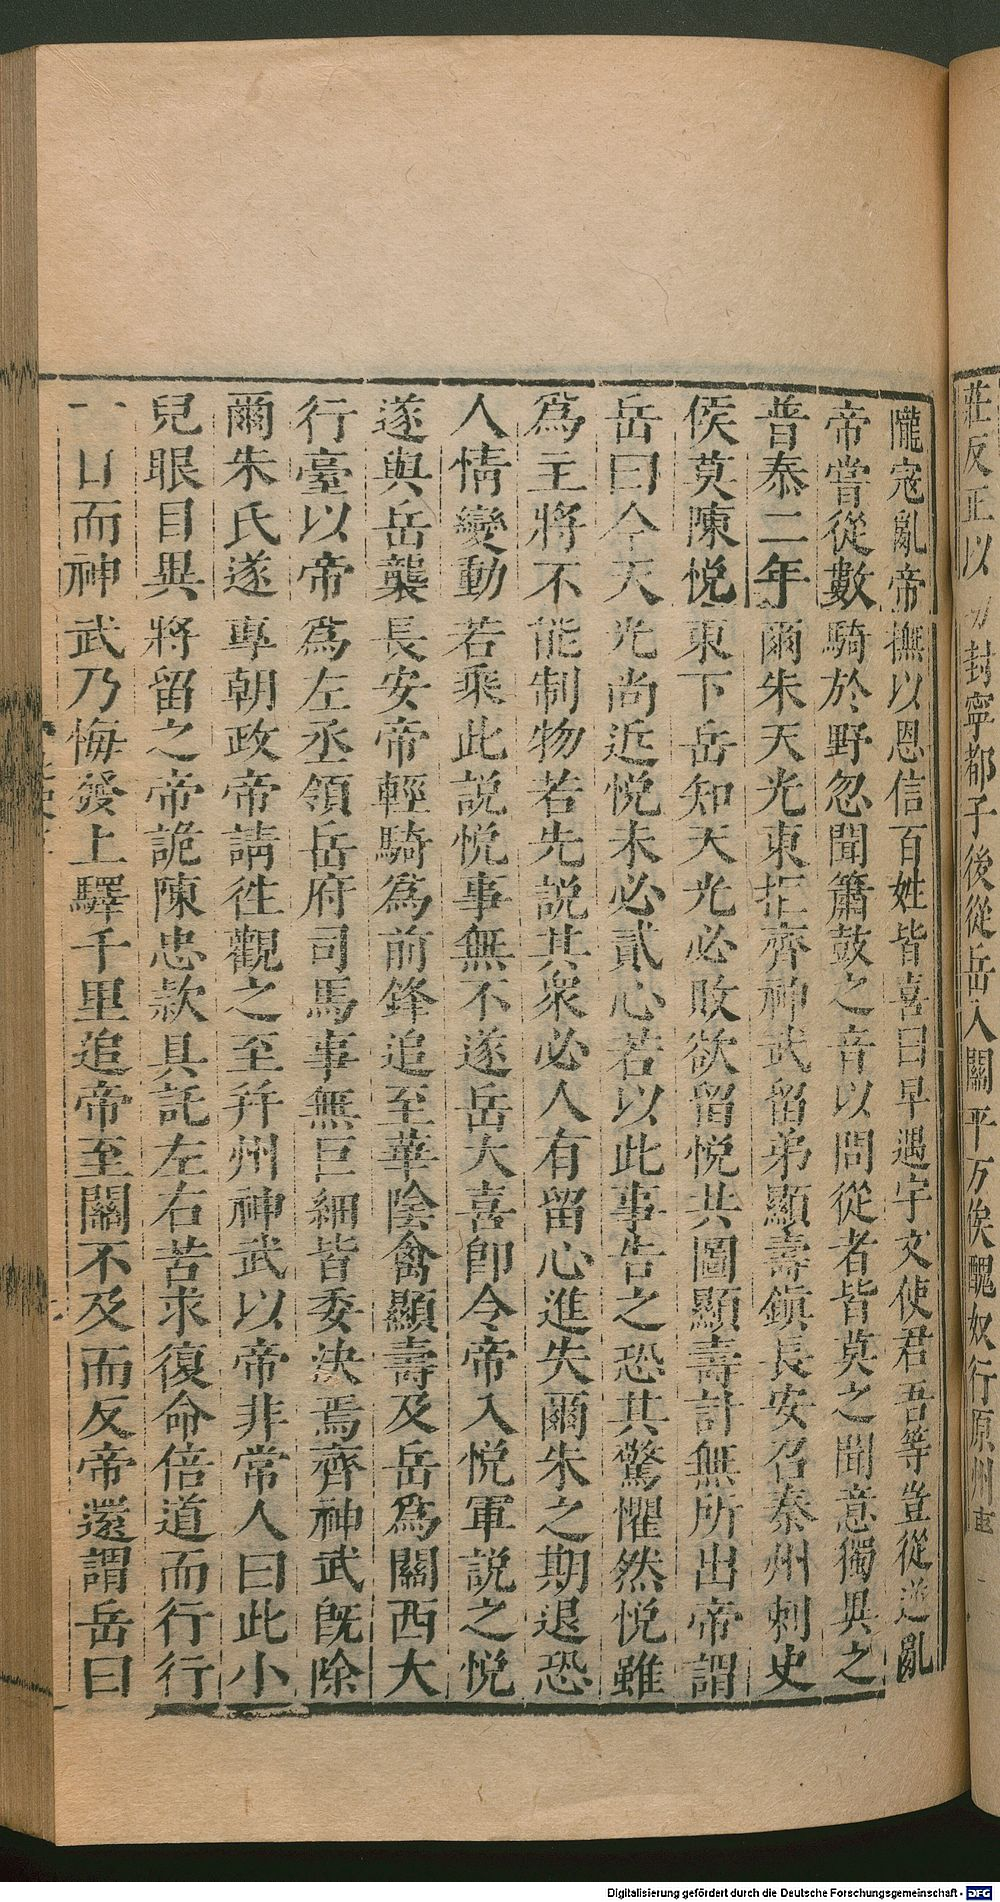 莊反正以功封寧都子後從岳入關平万俟醜奴行原州事
隴寇亂帝撫以恩信百姓皆喜曰早遇宇文使君吾等豈從逆亂
帝嘗從數騎於野忽聞簫鼓之音以問從者皆莫之聞意獨異之
普泰二年爾朱天光東拒齊神武留弟顯壽鎮長安召秦州刺史
侯莫陳悅東下岳知天光必敗欲留悅共圖顯壽計無所出帝謂
岳曰今天光尚近悅未必貳心若以此事告之恐其驚懼然悅雖
爲主將不能制物若先說其衆必人有留心進失爾朱之期退恐
人情變動若乘此說悅事無不遂岳大喜卽令帝入悅軍說之悅
遂與岳襲長安帝輕騎爲前鋒追至華陰禽顯壽及岳爲關西大
行臺以帝爲左丞領岳府司馬事無巨細皆委決焉齊神武旣除
爾朱氏遂專朝政帝請往觀之至幷州神武以帝非常人曰此小
兒眼目異將留之帝詭陳忠款具託左右苦求復命倍道而行行
一日而神武乃悔發上驛千里追帝至關不及而反帝還謂岳曰
Digitalisierung gefördert durch die Deutsche Forschungsgemeinschaft - DFG